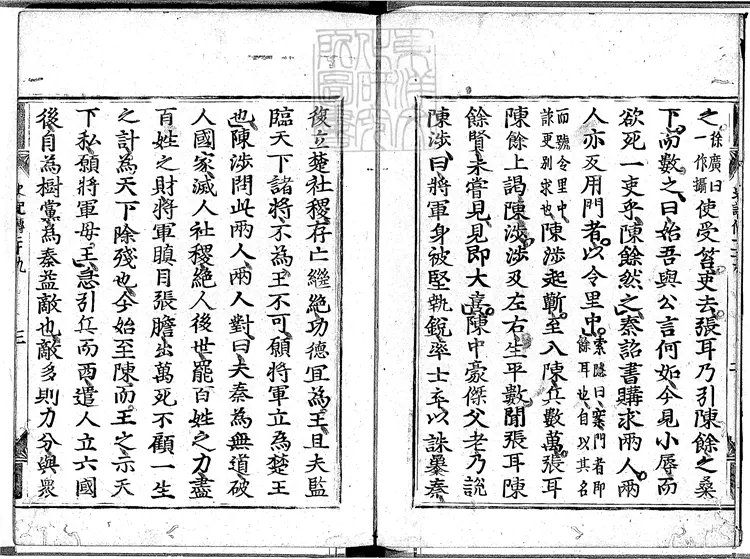 之徐廣曰一作攝使受笞吏去張耳乃引陳餘之桑
下而數之曰始吾與公言何如今見小辱而
欲死一吏乎陳餘然之秦詔書購求兩人兩
人亦反用門者以令里中索隱曰案門者即餘耳也自以其名
而號令里中詐更別求也陳涉起蘄至入陳兵數萬張耳
陳餘上謁陳涉涉及左右生平數聞張耳陳
餘賢未嘗見見即大喜陳中豪傑父老乃說
陳涉曰將軍身被堅執銳率士卒以誅暴秦
復立楚社稷存亡繼絕功德宜為王且夫監
臨天下諸將不為王不可願將軍立為楚王
也陳涉問此兩人兩人對曰夫秦為無道破
人國家滅人社稷絕人後世罷百姓之力盡
百姓之財將軍瞋目張膽出萬死不顧一生
之計為天下除殘也今始至陳而王之示天
下私願將軍毋王急引兵而西遣人立六國
後自為樹黨為秦益敵也敵多則力分與衆